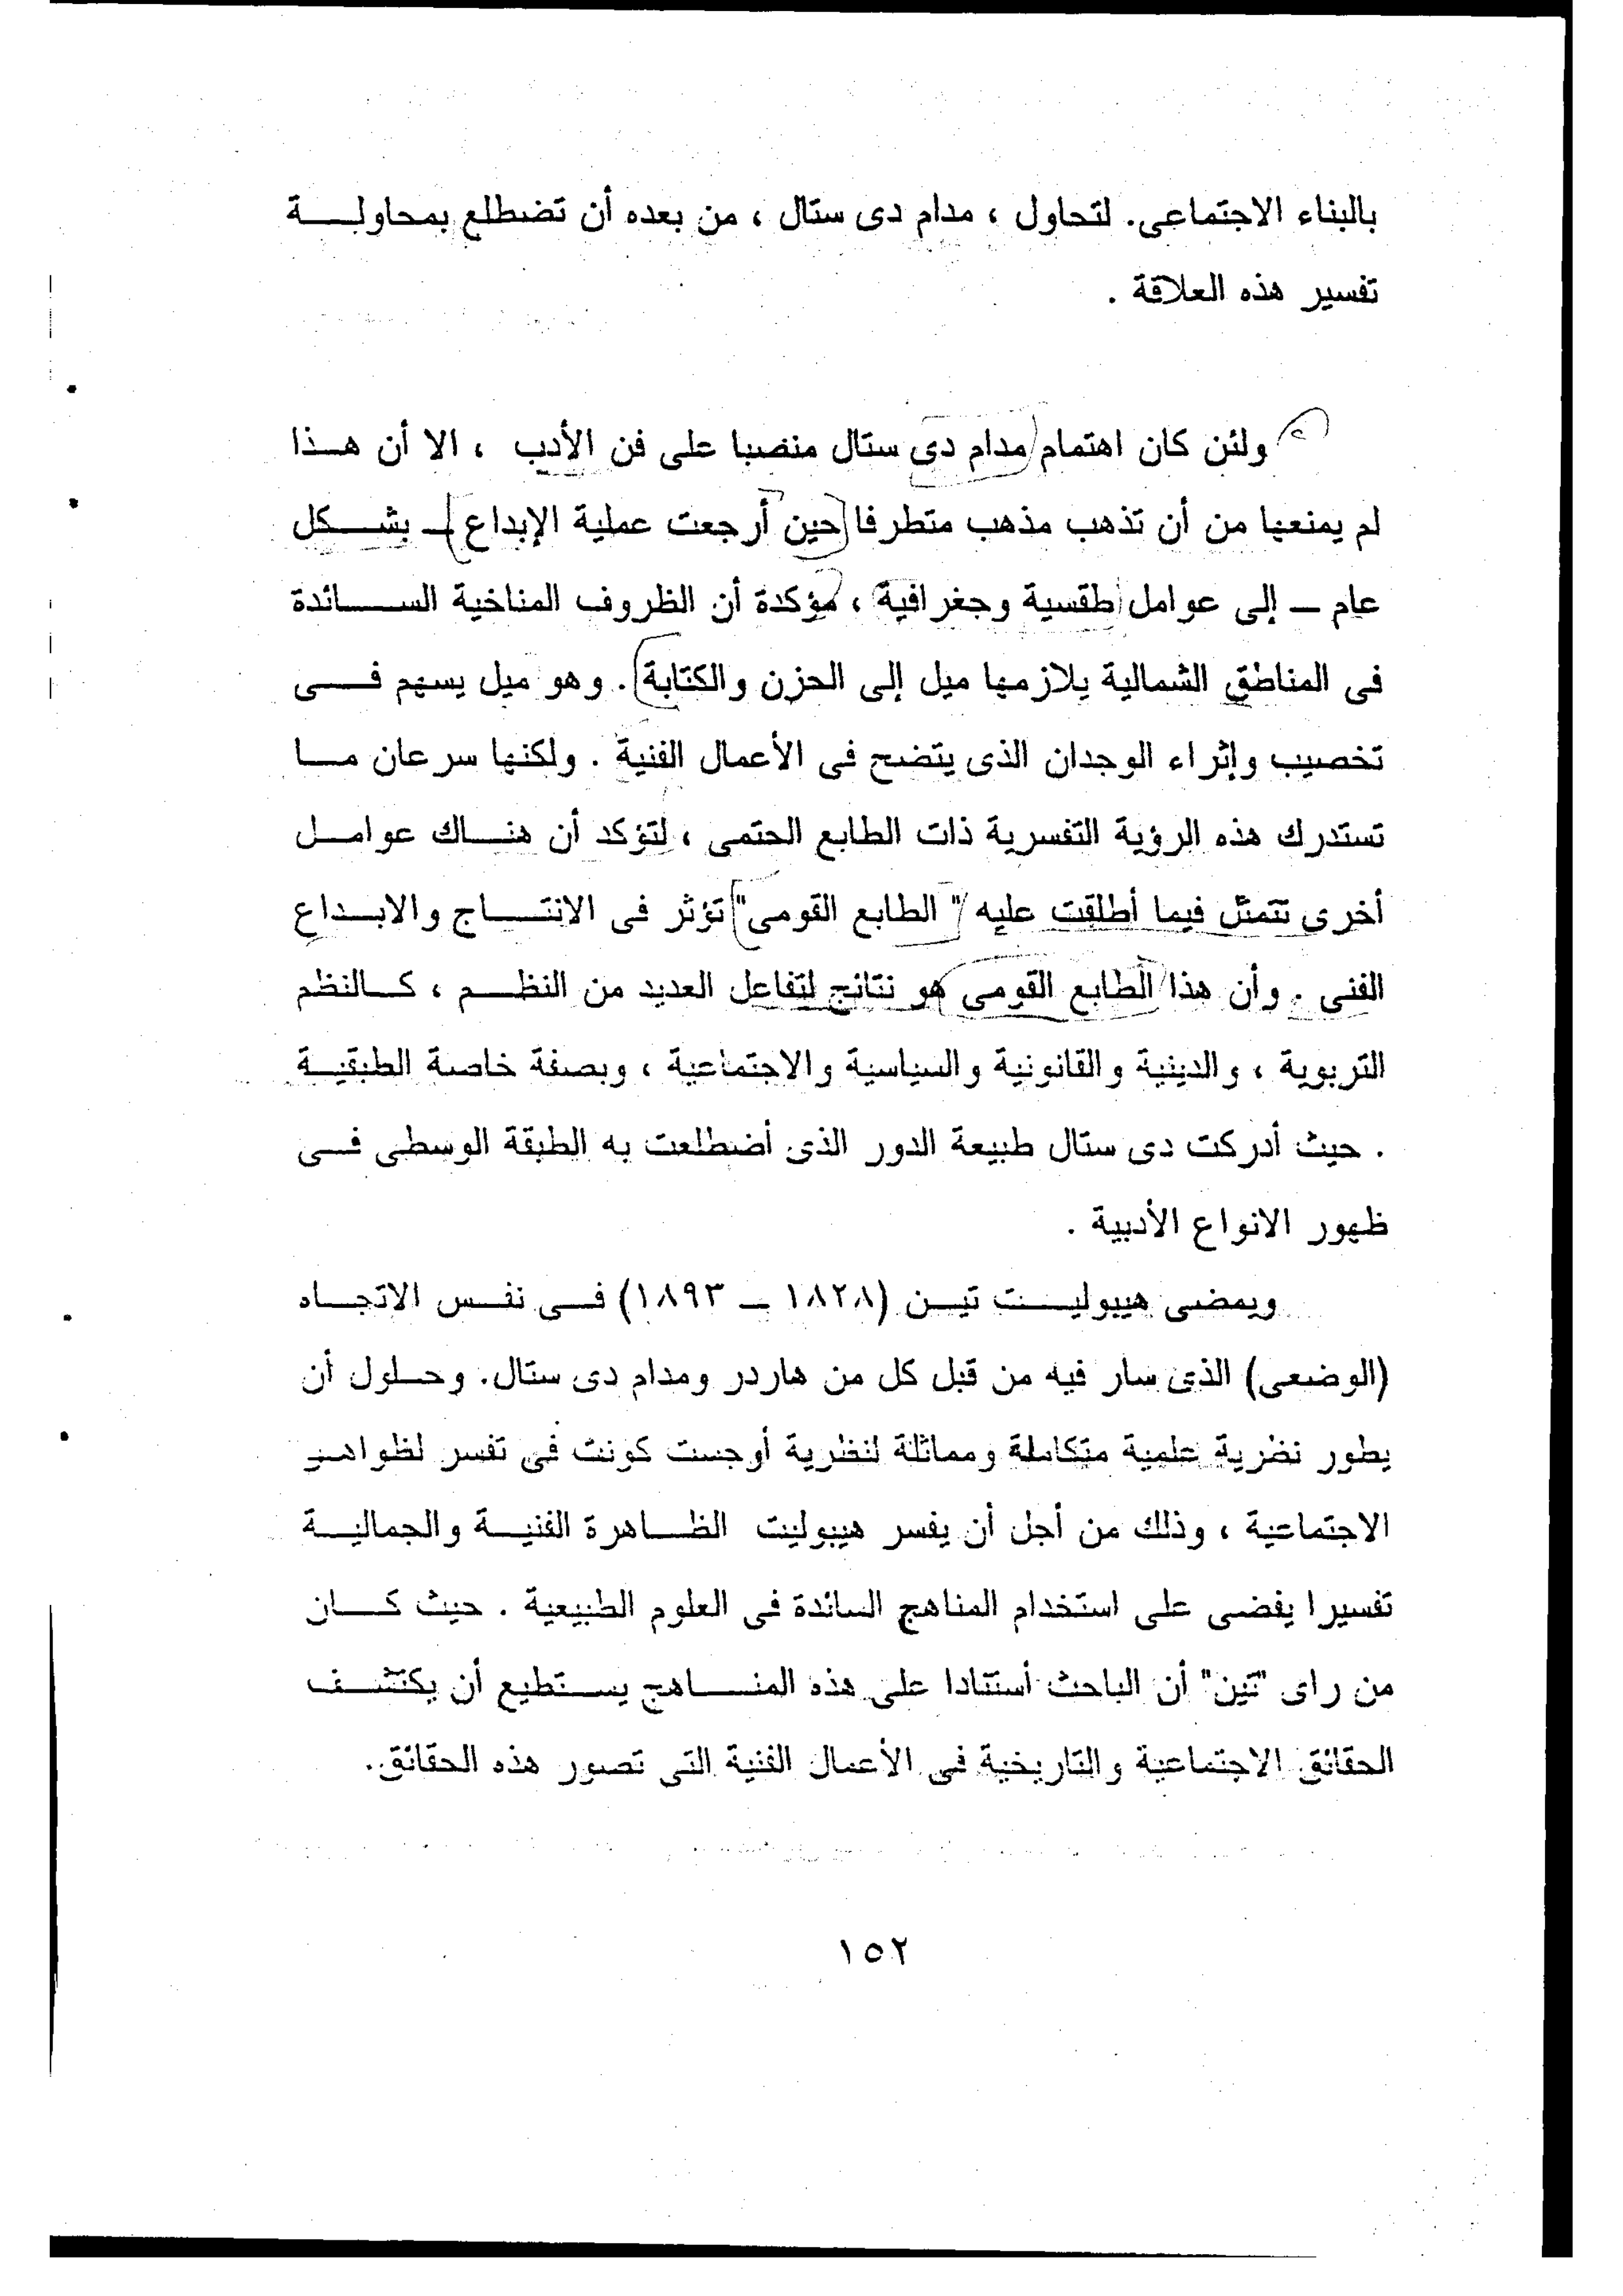 بالبناء الاجتماعى. لتحاول ، مدام دى ستال ، من بعده أن تضطلع بمحاولة
تفسير هذه العلاقة .
ولئن كان اهتمام مدام دى ستال منصبا على فن الأدب ، الا أن هذا
لم يمنعها من أن تذهب مذهب متطرفا حين أرجعت عملية الإبداع – بشكل
عام – إلى عوامل طقسية وجغرافية ، مؤكدة أن الظروف المناخية السائدة
فى المناطق الشمالية يلازمها ميل إلى الحزن والكتابة . وهو ميل يسهم فى
تخصيب وإثراء الوجدان الذى يتضح فى الأعمال الفنية . ولكنها سرعان ما
تستدرك هذه الرؤية التفسرية ذات الطابع الحتمى ، لتؤكد أن هناك عوامل
أخرى تتمثل فيما أطلقت عليه " الطابع القومى" تؤثر فى الانتاج والابداع
الفنى . وأن هذا الطابع القومى هو نتائج لتفاعل العديد من النظم ، كالنظم
التربوية ، والدينية والقانونية والسياسية والاجتماعية ، وبصفة خاصة الطبقية
. حيث أدركت دى ستال طبيعة الدور الذى أضطلعت به الطبقة الوسطى فى
ظهور الانواع الأدبية .
ويمضى هيبوليت تين (١٨٢٨ – ١٨٩٣) فى نفس الاتجاه
(الوضعى) الذى سار فيه من قبل كل من هاردر ومدام دى ستال. وحلول أن
يطور نظرية علمية متكاملة ومماثلة لنظرية أوجست كونت فى تفسر لظواهر
الاجتماعية ، وذلك من أجل أن يفسر هيبوليت الظاهرة الفنية والجمالية
تفسيرا يفضى على استخدام المناهج السائدة فى العلوم الطبيعية . حيث كان
من راى "تين" أن الباحث أستنادا على هذه المناهج يستطيع أن يكتشف
الحقائق الاجتماعية والتاريخية فى الأعمال الفنية التى تصور هذه الحقائق.
١٥٢